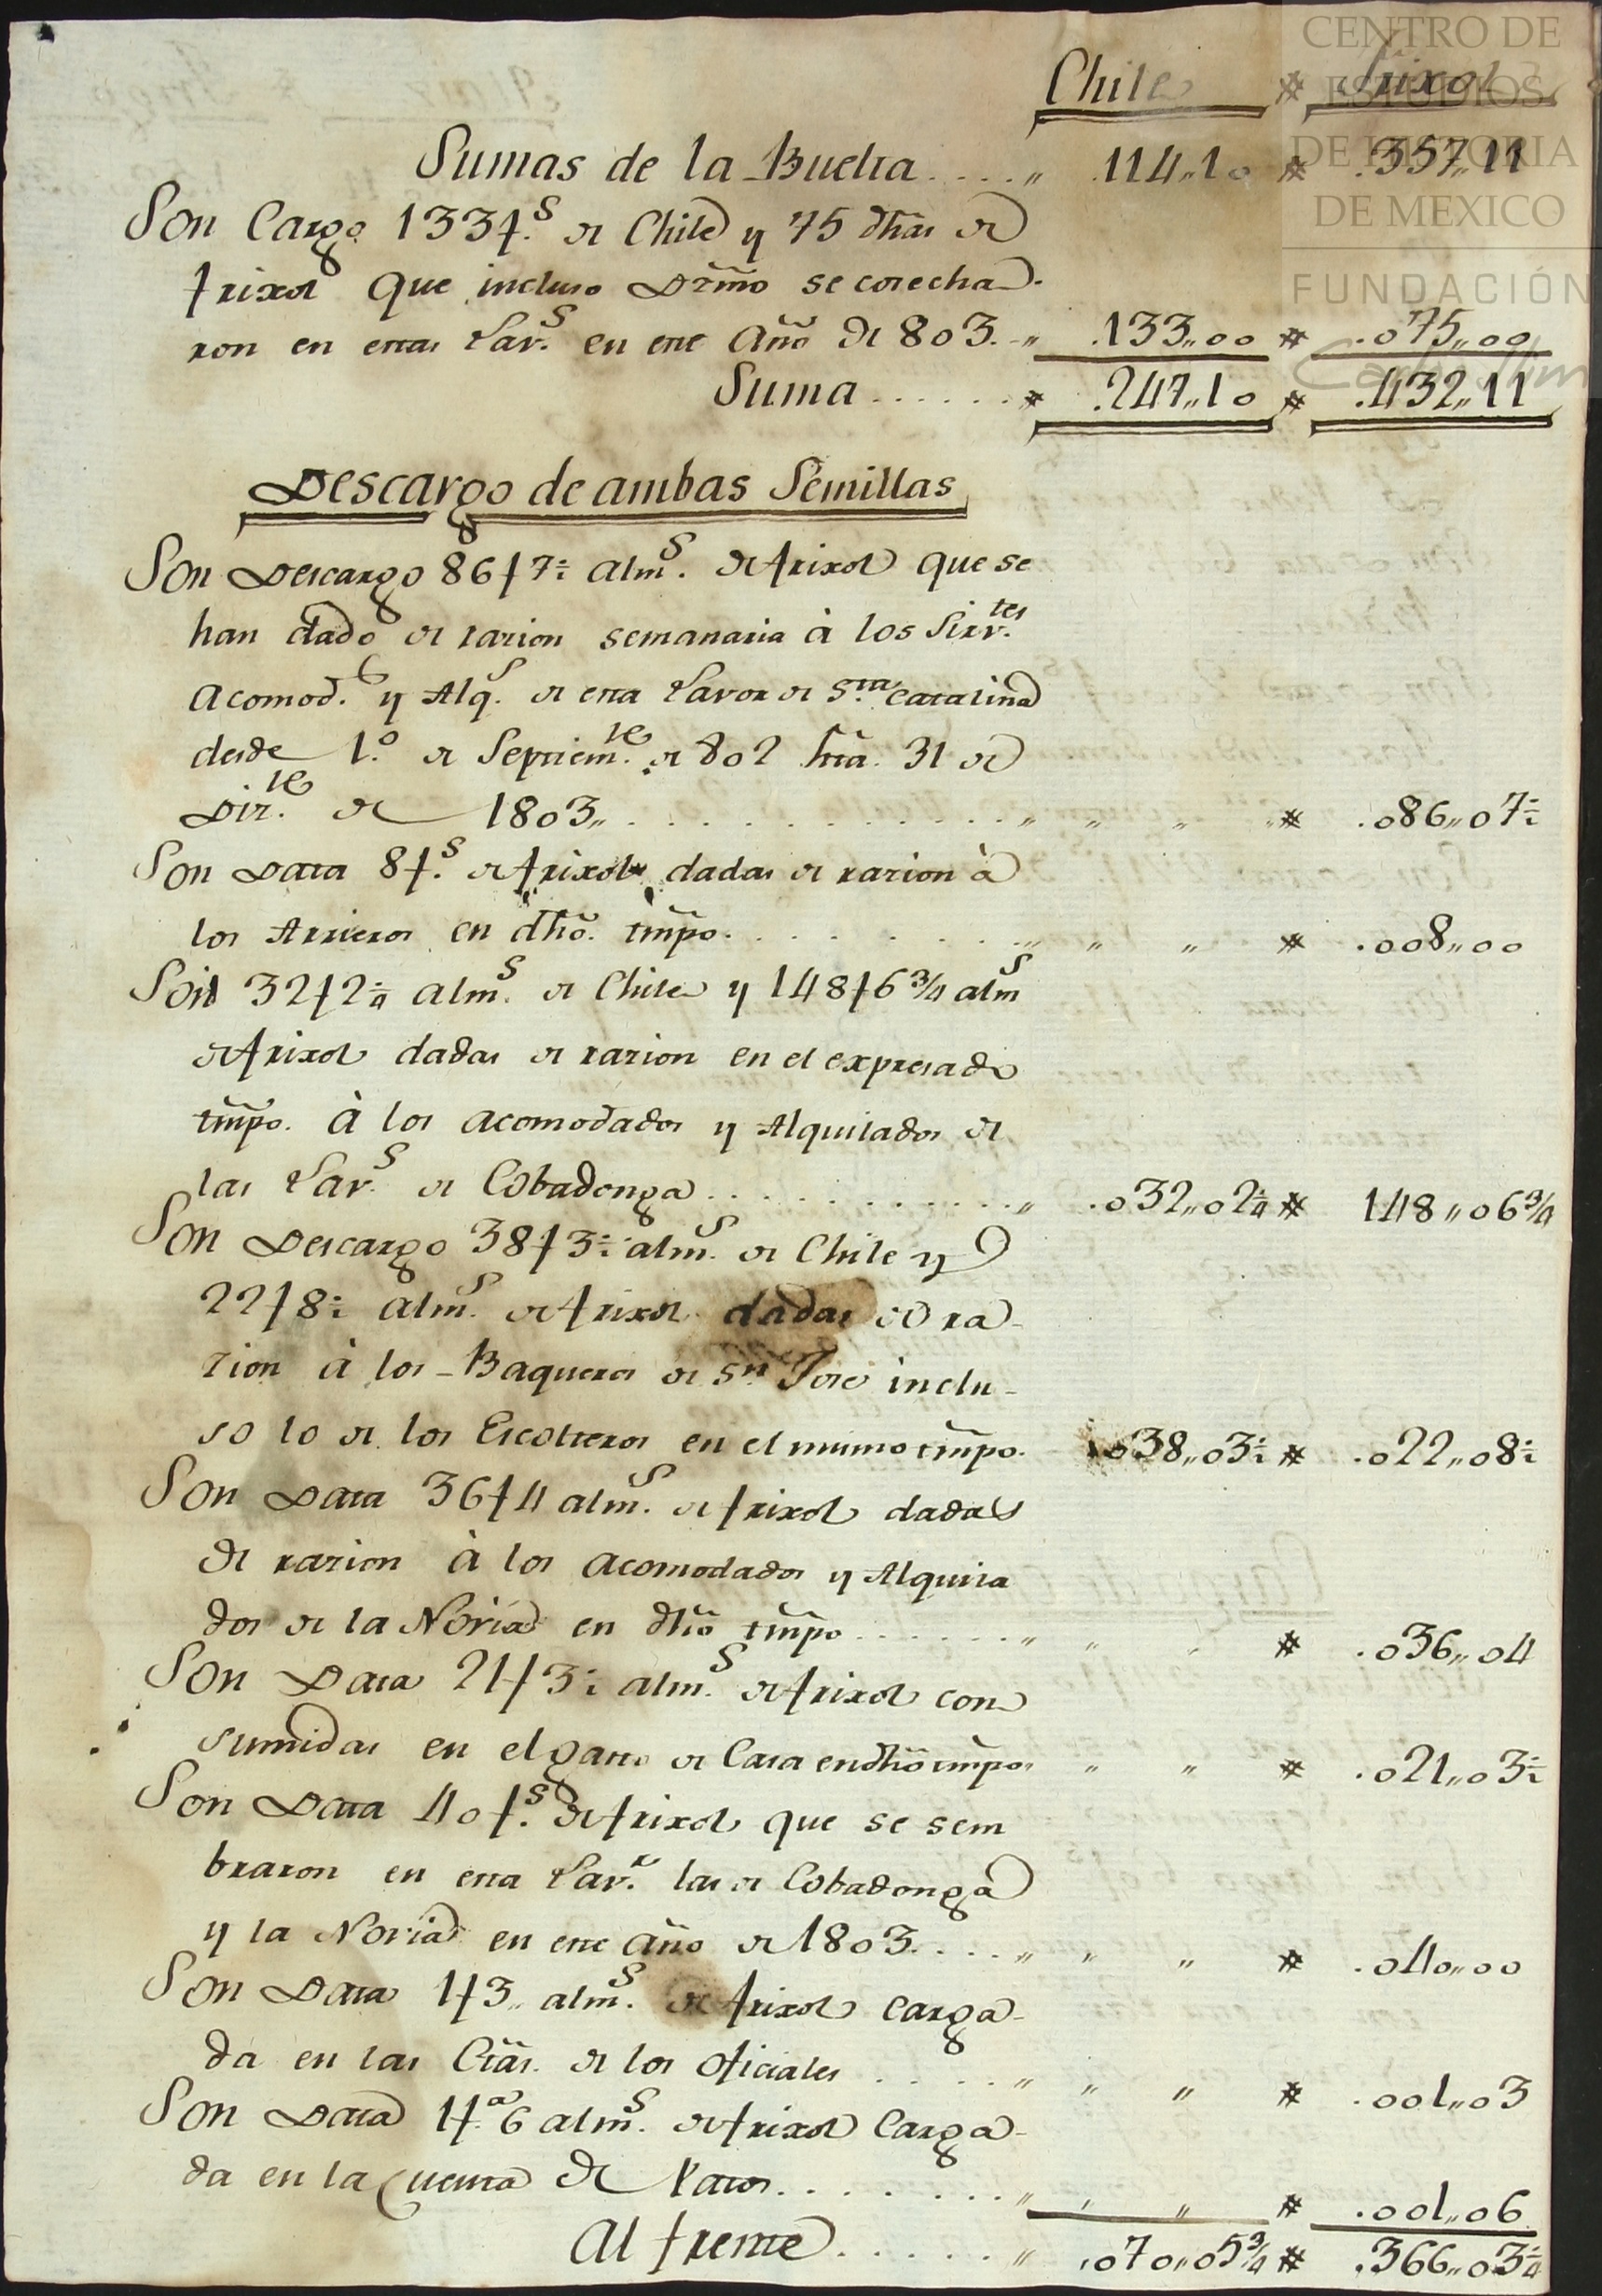 CENTRO DE
ESTUDIOS
DE HISTORIA
DE MEXICO
FUNDACIÓN
Carlos Slim
Chile # frixol
Sumas de la Buelta .... „ .114„10 # .357„11
Son Cargo 133 f.s de Chile y 75 dhãs de
frixol que incluso Dzmõ se cosecha-
ron en estas Lav.s en este Año de 803. „ .133„00 # .075„00
Suma ...... # .247„10 # .432„11
Descargo de ambas Semillas
Son Descargo 86 f 7 ½ alm.s de frixol que se
han dado de razion semanaria à los Sirv.tes
acomod.s y Alq.s de esta Lavor de S.ta Catalina
desde 1.º de Septiem.re de 802 hta. 31 de
Diz.re de 1803„ ............ „ „ „ # .086„07 ½
Son Data 8 f.s de frixol dadas de razion à
los Arrieros en dhõ. tmpõ. ........ „ „ „ # .008„00
Son 32 f 2 ¼ alm.s de Chile y 148 f 6 ¾ alm.s
de frixol dadas de razion en el expresado
tmpõ. à los acomodados y Alquilados de
las Lav.s de Cobadonga ........... „ .032„02 ¼ # 148„06 ¾
Son Descargo 38 f 3 ½ alm.s de Chile y
22 f 8 ½ alm.s de frixol dadas de ra-
zion à los Baqueros de S.n José inclu-
so lo de los Escolteros en el mismo tmpõ. .038„03 ½ # .022„08 ½
Son Data 36 f 4 alm.s de frixol dadas
de razion à los acomodados y Alquila
dos de la Noria en dhõ tmpõ ...... „ „ „ # .036„04
Son Data 21 f 3 ½ alm.s de frixol con
sumidas en el gasto de Casa en dhõ tmpõ „ „ „ # .021„03 ½
Son Data 40 f.s de frixol que se sem
braron en esta Lav.r las de Cobadonga
y la Noria en este año de 1803 .... „ „ „ # .040„00
Son Data 1 f 3„ alm.s de frixol carga-
da en las Ctãs. de los oficiales ..... „ „ „ # .001„03
Son Data 1 f.a 6 alm.s de frixol Carga-
da en la Cuenta de Patos ........ „ „ „ # .001„06
Al frente ...... „ .070„05 ¾ # .366„03 ¼